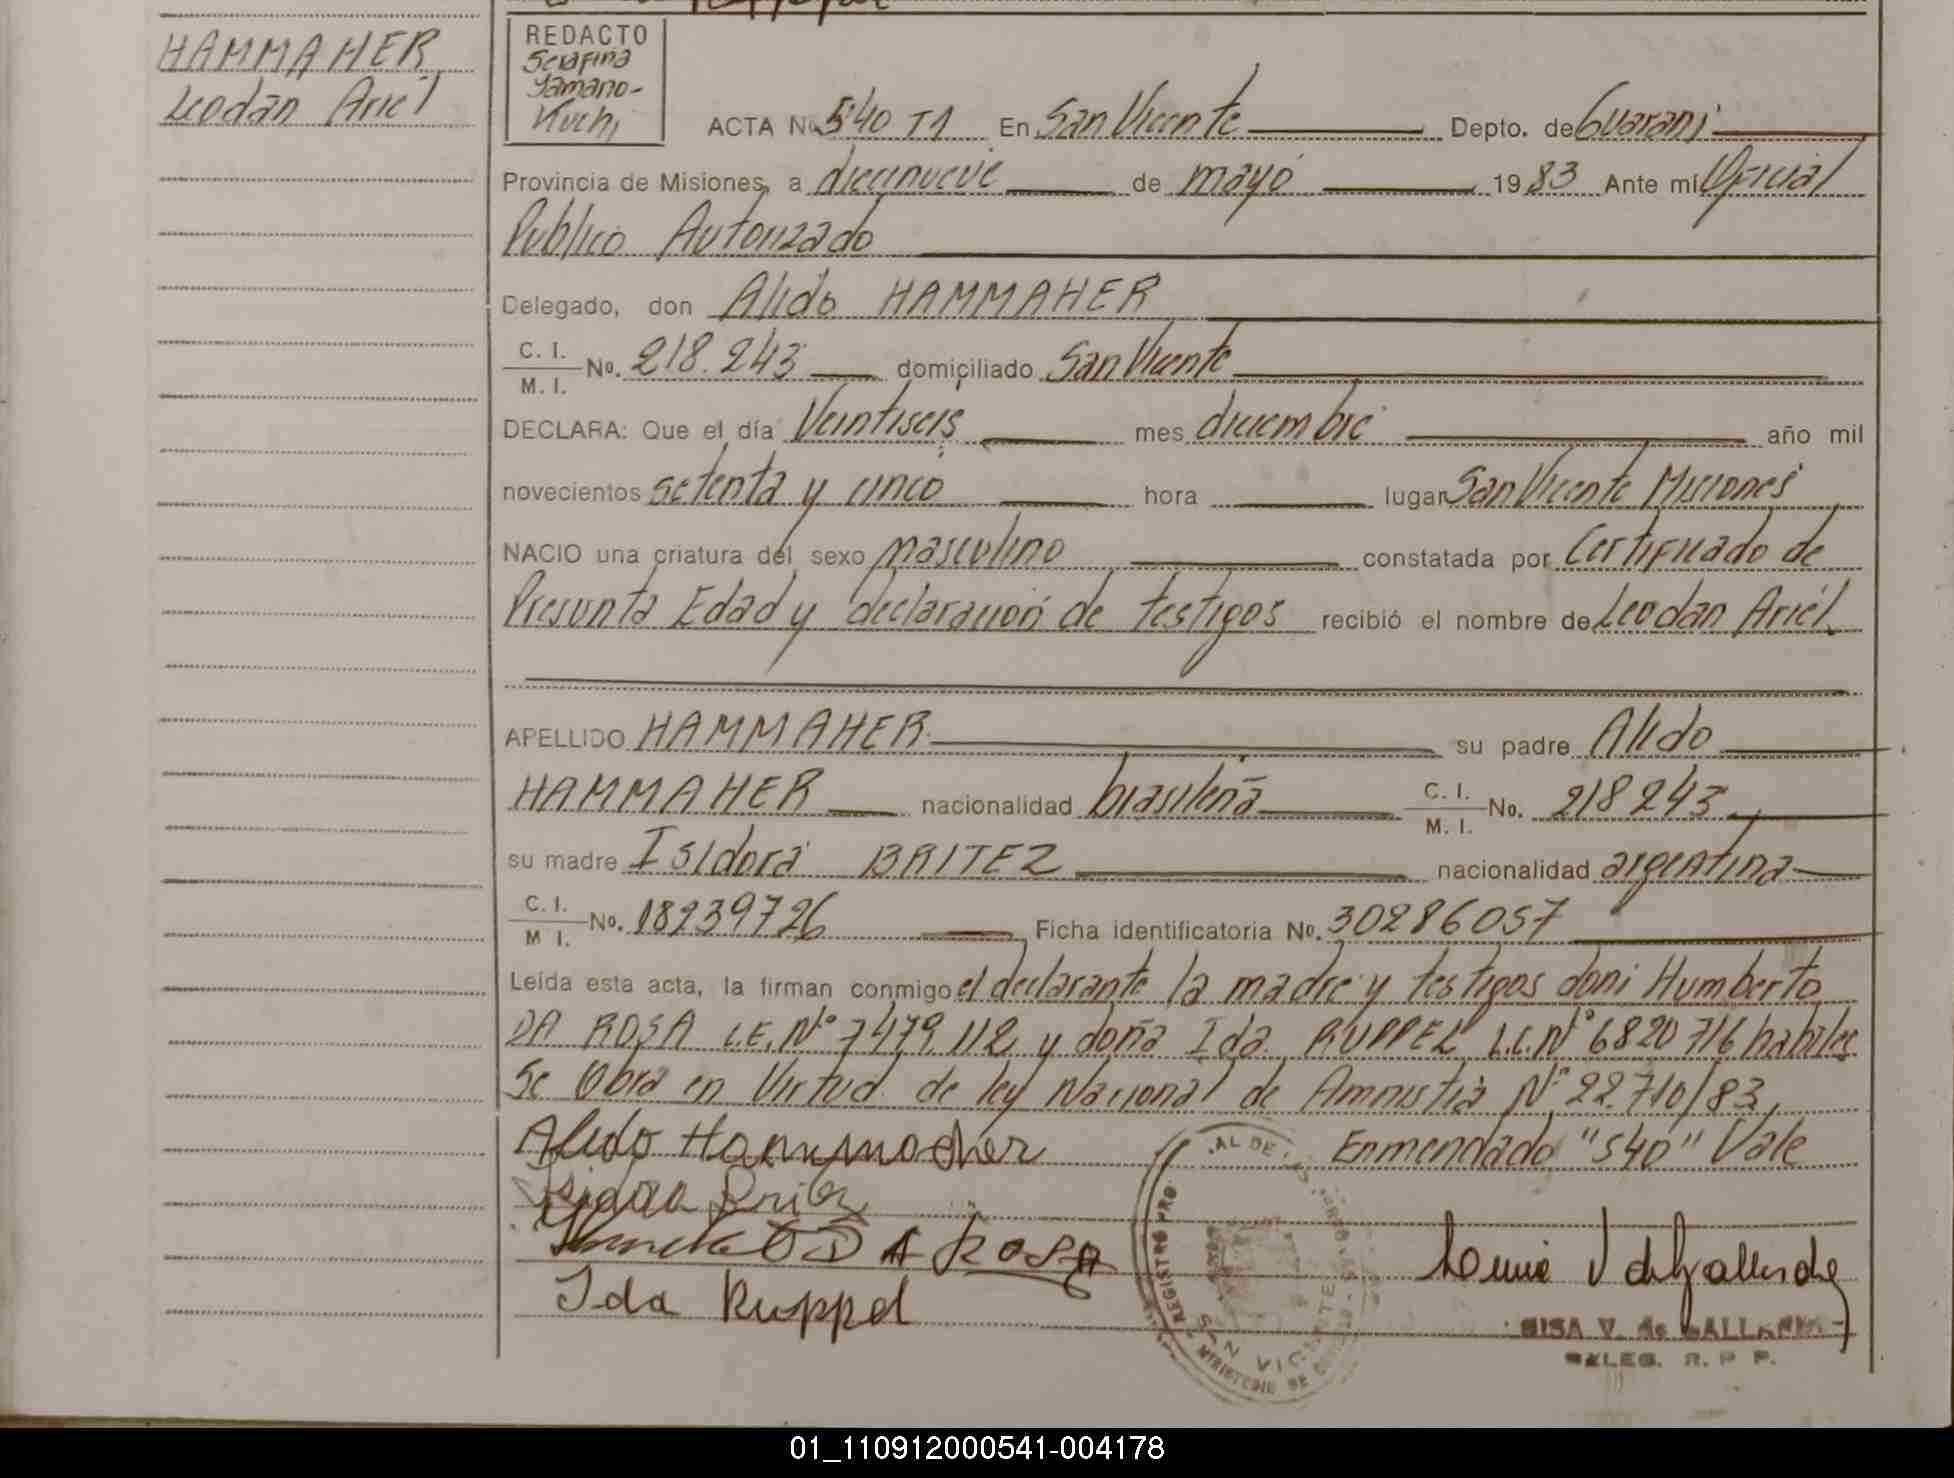 HAMMAHER
Leodan Ariel
REDACTO
Serafina
Yamano-
Kuchi
ACTA No 540 T1 En San Vicente Depto. de Guarani
Provincia de Misiones, a diecinueve de mayo 1983 Ante mi Oficial
Publico Autorizado
Delegado, don Alido HAMMAHER
C. I.
M. I. No. 218.243 domiciliado San Vicente
DECLARA: Que el día Veintiseis mes diciembre año mil
novecientos setenta y cinco hora lugar San Vicente Misiones
NACIO una criatura del sexo masculino constatada por Certificado de
Presunta Edad y declaración de testigos recibió el nombre de Leodan Ariel
APELLIDO HAMMAHER su padre Alido
HAMMAHER nacionalidad brasileña C. I.
M. I. No. 218243
su madre Isidora BRITEZ nacionalidad argentina
C. I.
M I. No. 18239726 Ficha identificatoria No. 30286057
Leída esta acta, la firman conmigo el declarante la madre y testigos don: Humberto
DA ROSA L.E. Nº 7479.112 y doña Ida RUPPEL L.C. Nº 6820716 habiles
Se Obra en Virtud de ley Nacional de Amnistia Nº 22.710/83
Enmendado "540" Vale
Alido Hammacher
Isidora Britez
DA ROSA
Ida Ruppel
REGISTRO PRO
AL DE LAS
SAN VICENTE
V. de GALLARDO
DELEG. R. P. P.
01_110912000541-004178